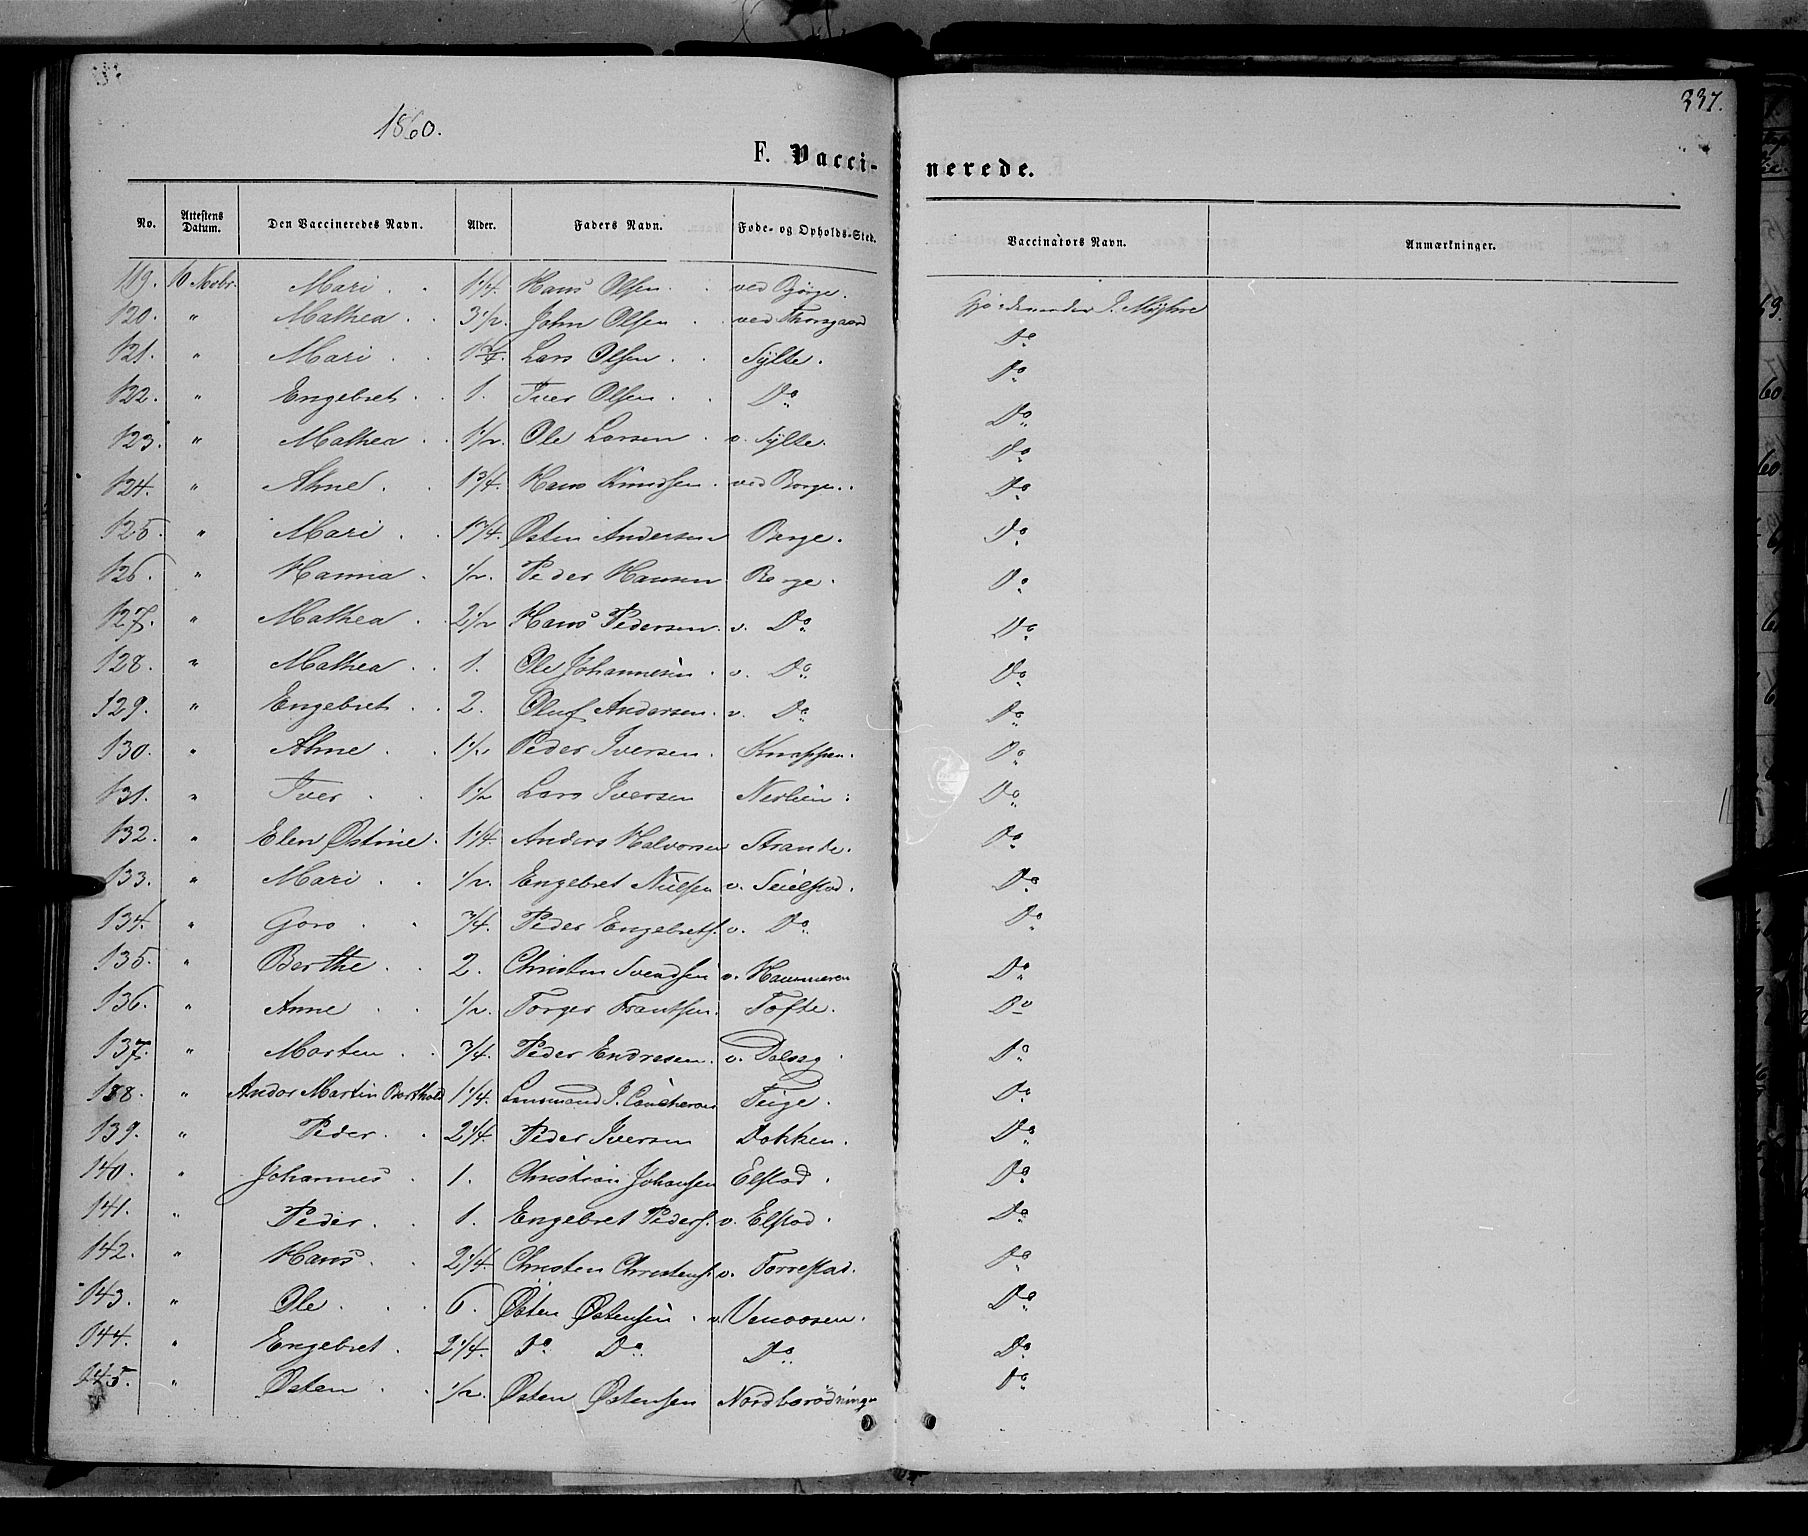 337.
1860.
F. Vacci-
nerede.
No. Attestens Datum. Den Vaccineredes Navn. Alder. Faders Navn. Føde- og Opholds-Sted. Vaccinatørs Navn. Anmærkninger.
119. 10 Nobr. Mari . . 1 1/4 Hans Olsen . . ved Børge. J. Møystre
120. " Mathea . . 3 1/2. John Olsen . . ved Thorsgaard Do
121. " Mari . . Lars Olsen . . Sylte. Do
122. " Engebret . . 1. Iver Olsen . . Do Do
123. " Mathea . . 1 1/2. Ole Larsen . v. Sylte. Do
124. " Ahne . . 1 3/4. Hans Knudsen . ved Borge. Do
125. " Mari . . 1 3/4. Østen Andersen Berge. Do
126. " Hanna . 1/2. Peder Hansen Berge. Do
127. " Mathea . 2 1/2 Hans Pedersen. v. Do Do
128. " Mathea . . 1. Ole Johannesen . v. Do Do
129. " Engebret . . 2. Oluf Andersen. v. Do Do
130. " Ahne . . 1 1/2 Peder Iversen. Knappen. Do
131. " Iver . . 1 1/2 Lars Iversen Nerlien. Do
132. " Elen Østine. 1 1/4. Anders Halvorsen Strande. Do
133. " Mari . . 1/2. Engebret Nielsen v. Seielstad. Do
134. " Goro . . 3/4. Peder Engebrets. v. Do Do
135. " Berthe . . 2. Christen Svendsen v. Hammeren Do
136. " Anne . . 1/2. Torger Frantsen. Tofte. Do
137. " Morten . . 3/4. Peder Endresen. v. Dalseg. Do
138. " Andor Martin Berthold 1 1/4. Lensmand J. Teige. Do
139. " Peder . . 2 1/4. Peder Iversen Dokken. Do
140. " Johannes . 1. Christian Johansen Elstad. Do
141. " Peder . . 1. Engebret Peders. v. Elstad. Do
142. " Hans . . 2 1/4. Christen Christens. v. Forrestad. Do
143. " Ole . . . 6. Østen Østensen . v. Venaasen. Do
144. " Engebret . 2 1/4. Do Do Do Do
145. " Østen . . 1/2. Østen Østensen Do